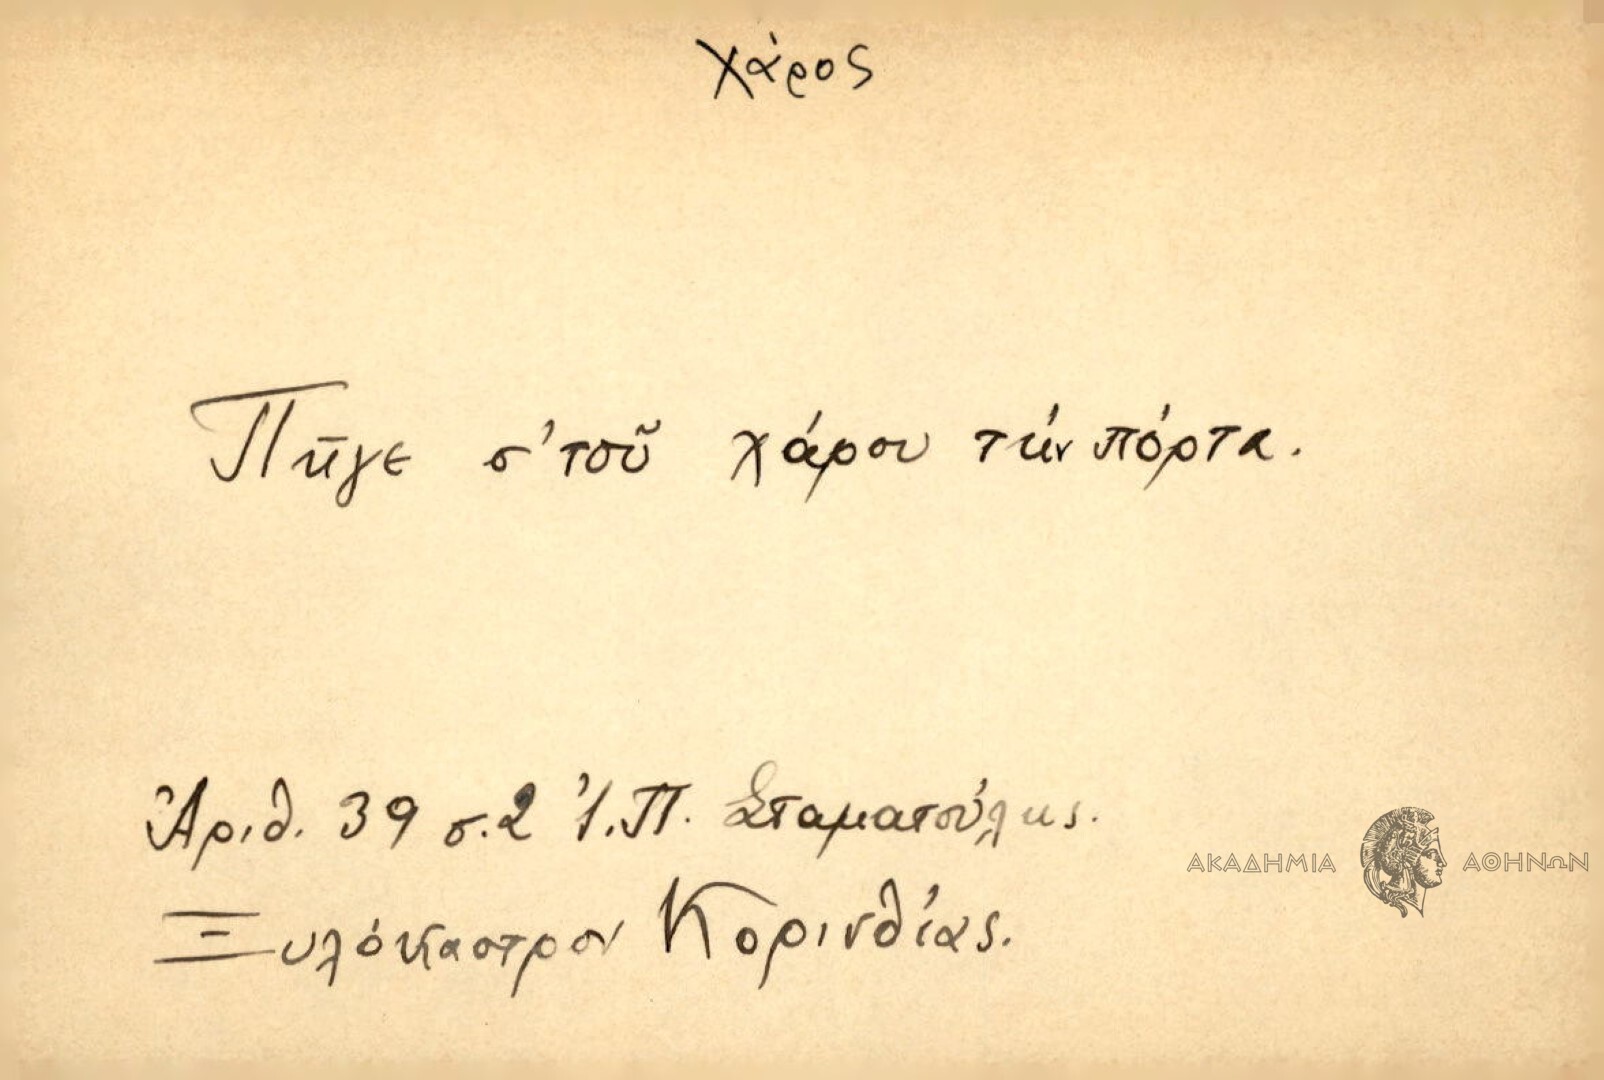 Χάρος
Πῆγε σ' τοῦ χάρου τήν πόρτα.
Ἀριθ. 39 σ. 2 Ἰ. Π. Σταματούλης.
Ξυλόκαστρον Κορινθίας.
ΑΚΑΔΗΜΙΑ ΑΘΗΝΩΝ